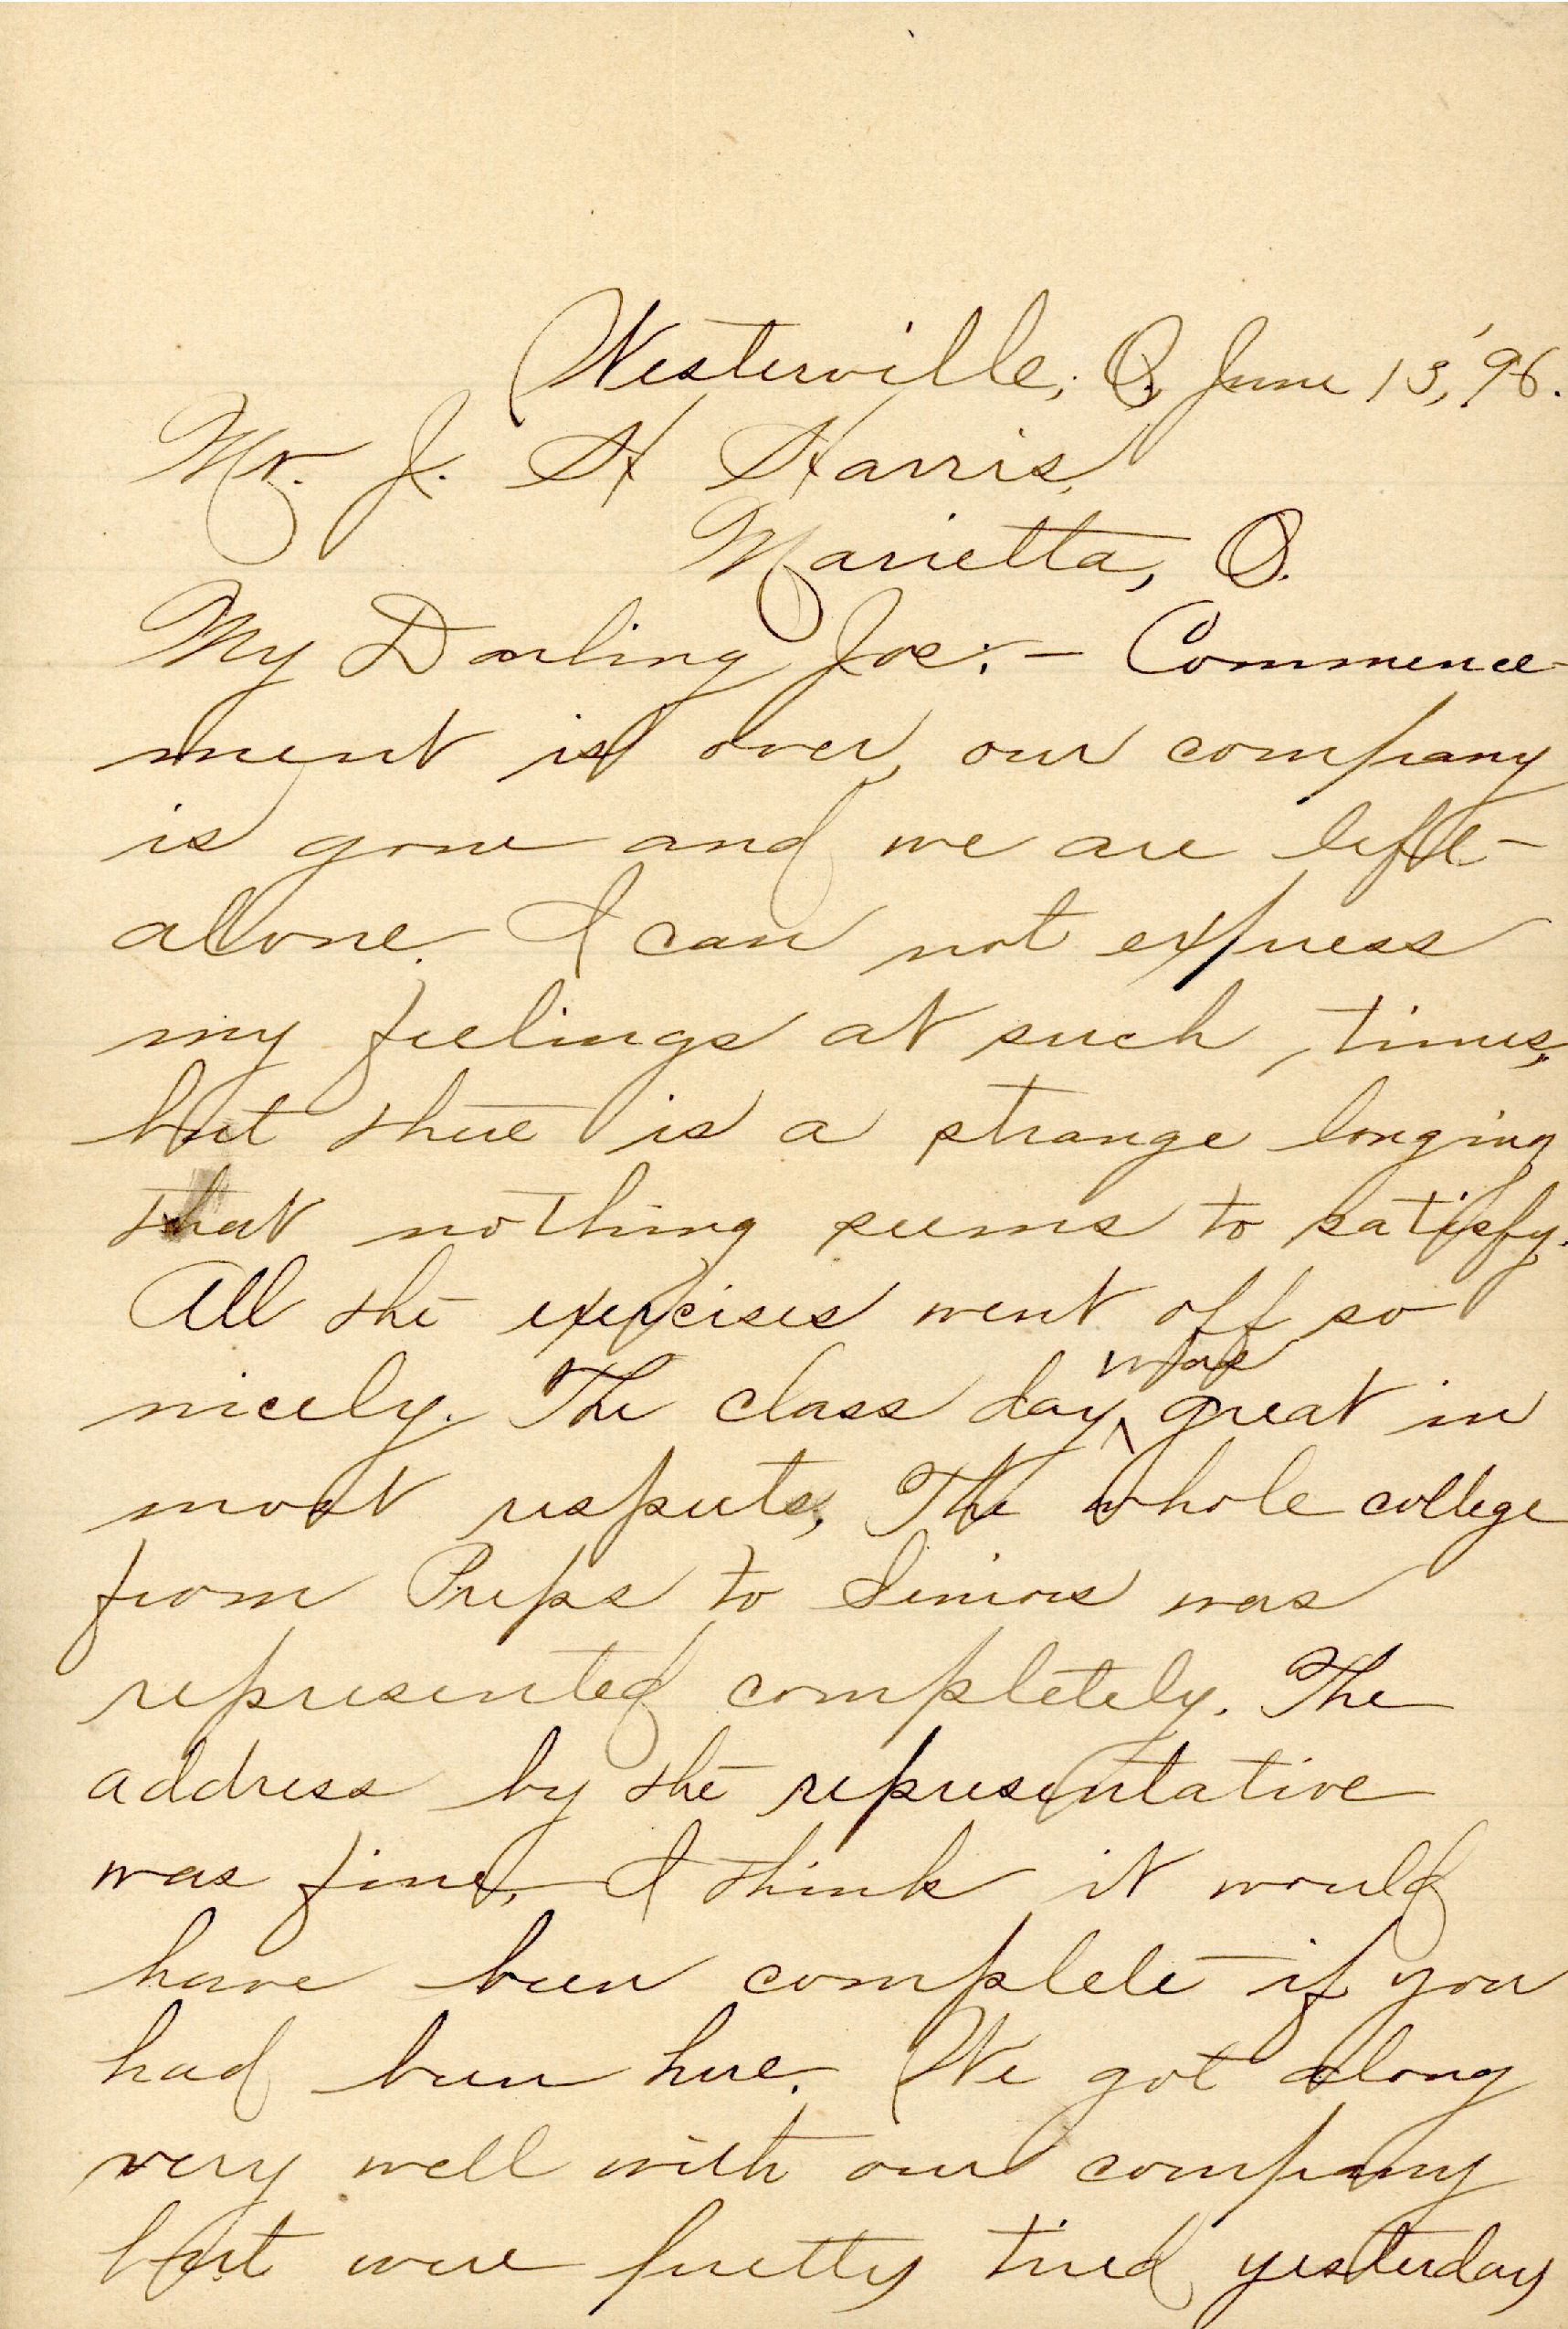 Westerville, O, June 13, '96.
Mr. J. H Harris,
Marietta, O.
My Darling Joe:- Commence-
ment is over, our company
is gone and we are left
alone. I can not express
my feelings at such times,
but there is a strange longing
that nothing seems to satisfy.
All the exercises went off so
nicely. The class day was great in
most respects, The whole college
from Preps to Seniors was
represented completely. The
address by the representative
was fine, I think it would
have been complete if you
had been here. We got along
very well with our company
but were pretty tired yesterday